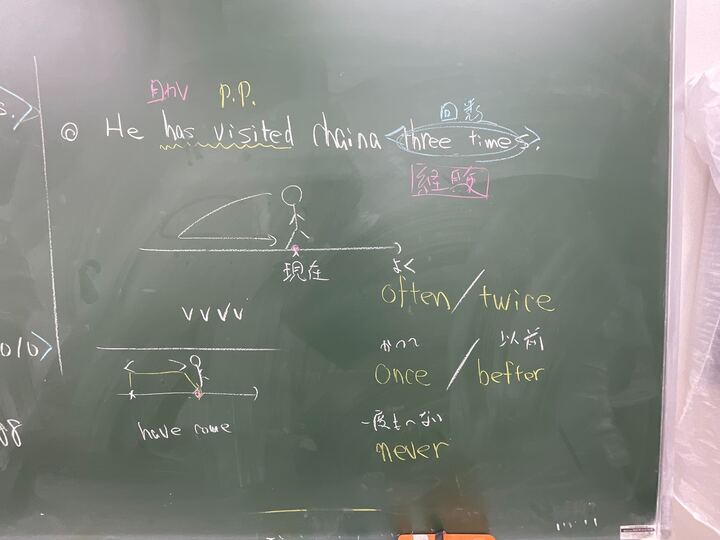 助V p.p.
回数
He has visited chaina <three times>.
経験
現在
よく
often / twice
vvvv
かつて 以前
once / beftor
一度も〜ない
have come
never